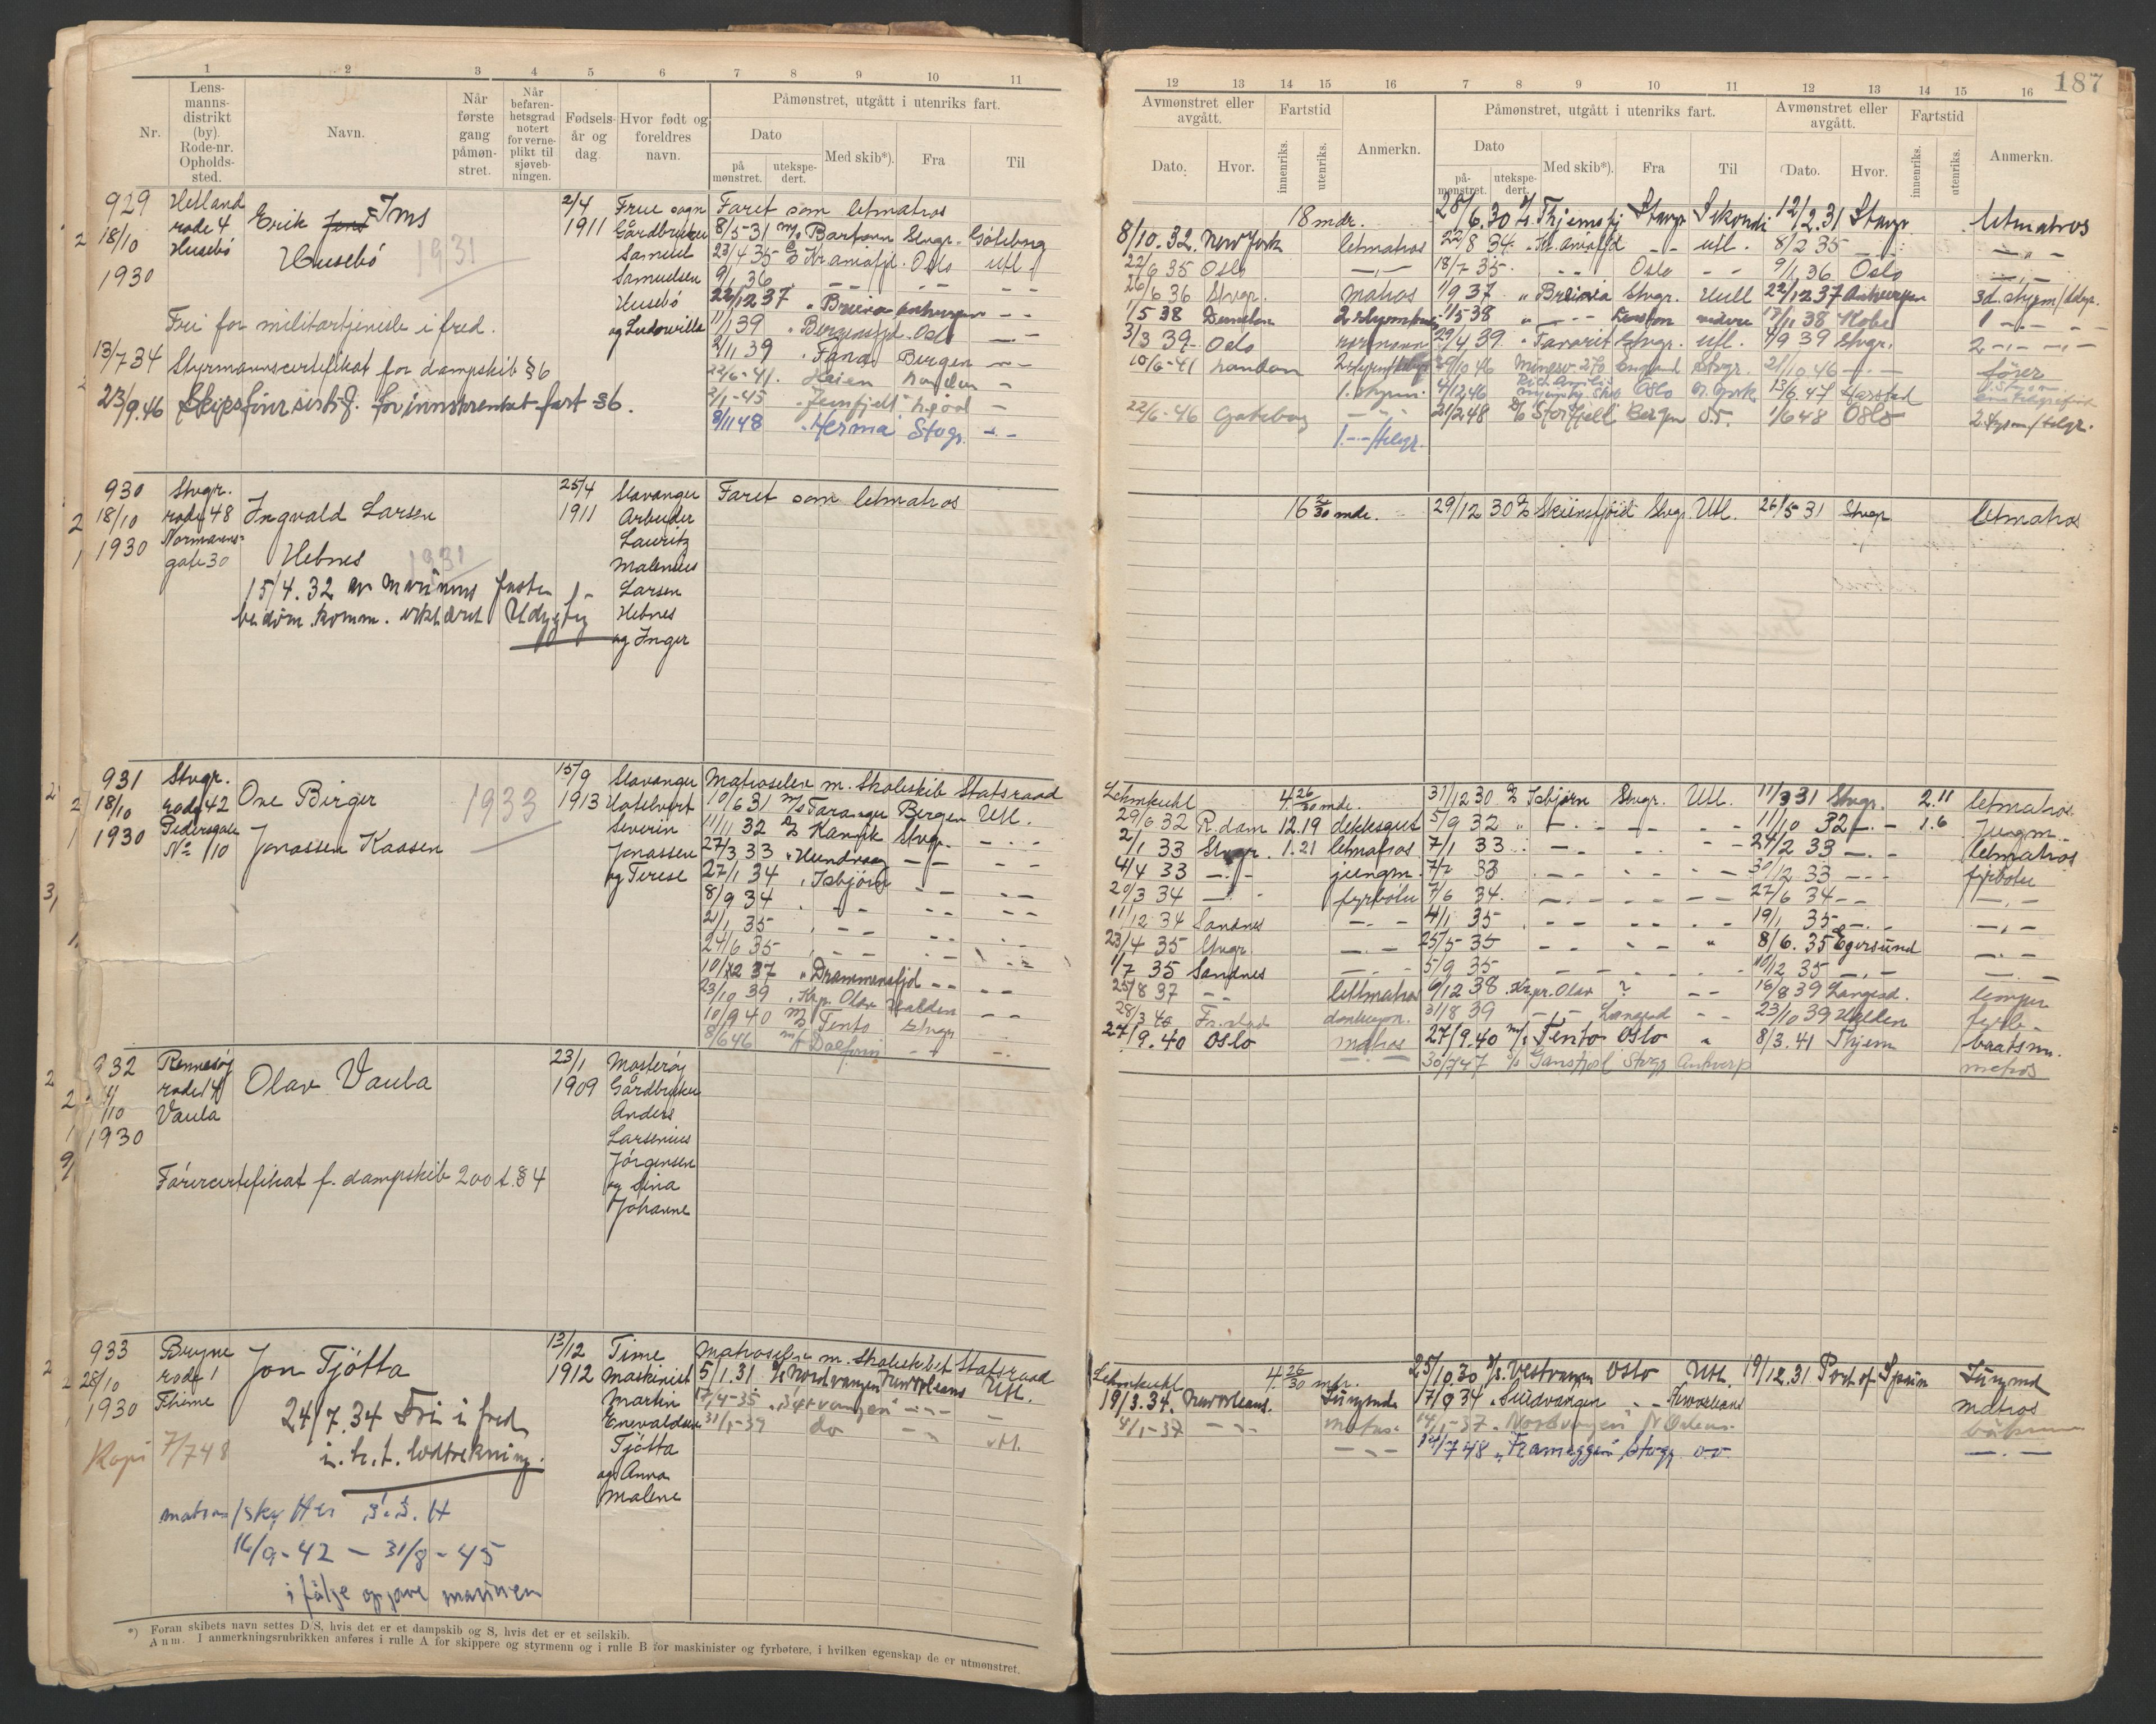 1 2 3 4 5 6 7 8 9 10 11
Nr.
Lens-
manns-
distrikt
(by).
Rode-nr.
Opholds-
sted.
Navn.
Når
første
gang
påmøn-
stret.
Når
befaren-
hetsgrad
notert
for verne-
plikt til
sjøveb-
ningen.
Fødsels-
år og
dag.
Hvor født og
foreldres
navn.
Påmønstret, utgått i utenriks fart.
Dato
på
mønstret.
utekspe-
dert.
Med skib*).
Fra
Til
929
18/10
1930
Hetland
rode 4
Husebø
Erik Ims
Husebø
1931
2/4
1911
Frue sogn
Gårdbruker
Samuel
Samuelsen
Husebø
og Ludovilla
Faret som letmatros
8/5-31 M/s Bartavn Stvgr. Göteborg
23/4 35 Kr.aniafjd. Oslo utl.
9/1 36 - - - - - -
22/12 37 " Breivia - -
11/1 39 " Bergensfjd Oslo
2/11 39 " Fana Bergen
22/6-41. Heien London
2/1-45 " Jernfjell
8/11 48 " Herma Stvgr.
Fri for militærtjeneste i fred.
13/7 34 Styrmannscertifikat for dampskib § 6
23/9.46 Skipsfører sertif. for innskrenket fart § 6.
930
18/10
1930
Stvgr.
rode 48
Normanns-
gate 30
Ingvald Larsen
Hebnes
1931
15/4.32 av Marinens faste
bedøm. komm. erklæret Udygtig
25/4
1911
Stavanger
Arbeider
Lauritz
Malenius
Larsen
Hebnes
og Inger
Faret som letmatros
931
18/10
1930
Stvgr.
rode 42
Pedersgate
No 110
One Birger
Jonassen Kaasen
1933
15/9
1913
Stavanger
Hotelvert
Severin
Jonassen
og Terese
Matroselev m. Skoleskib Statsraad
10/6 31 M/s Taranger Bergen Utl.
11/11 32 Kannik Stvgr. - - -
27/3 33 " Hundvaag - - - -
27/1 34 " Isbjørn - - - -
8/9 34 " - - - -
2/1 35 " - - - -
24/6 35 " - - - -
10/12 37 " Drammensfjd - - - -
23/10 39 " Krp. Olav Halden - -
10/9 40 M/s Tento Stvgr
8/6 46 Delfinn
932
/10
1930
Rennesøy
rode 14
Vaula
Olav Vaula
23/1
1909
Mosterøy
Gårdbruker
Anders
Larsenius
Jørgensen
og Sina
Johanne
Førercertifikat f. dampskib 200 t. § 4
933
28/10
1930
Bryne
rode 1
Thime
Jon Tjøtta
24/7.34 Fri i fred
i. h. t. lodtrekning.
Kopi 7/748
13/12
1912
Time
Maskinist
Martin
Enevaldsen
Tjøtta
og Anna
Malene
Matroselev m. Skoleskibet Statsraad
5/1.31 Nordvangen New Orleans Utl.
17/4-35 " Sydvangen" - - -
31/1-39 do - - utl.
matros/skytter
16/9-42 – 31/8-45
i følge oppgave marinen
*) Foran skibets navn settes D/S, hvis det er et dampskib og S, hvis det er et seilskib.
Anm. I anmerkningsrubrikken anføres i rulle A for skippere og styrmenn og i rulle B for maskinister og fyrbøtere, i hvilken egenskap de er utmønstret.
187
12 13 14 15 16 7 8 9 10 11 12 13 14 15 16
Avmønstret eller
avgått.
Dato. Hvor.
Fartstid
innenriks.
utenriks.
Anmerkn.
Påmønstret, utgått i utenriks fart.
Dato
på-
mønstret.
utekspe-
dert.
Med skib*).
Fra
Til
Avmønstret eller
avgått.
Dato. Hvor.
Fartstid
innenriks.
utenriks.
Anmerkn.
18 mdr. 28/6.30 Stavgr Sekondi 12/2.31 Stavgr letmatros
8/10.32. New York letmatros 22/8 34. Kr.aniafjd - - utl. 8/2 35 - - -
22/6 35 Oslo - - - 18/7 35. - - Oslo - - 9/1 36 Oslo - - -
26/6 36 Stvgr. matros 1/9 37 " Breivia Stvgr. Hull 22/12 37 Antwerpen 3d. styrm/telgr.
1/5 38 1/5-38 17/11 38 Kobe 1 - - -
3/3 39 - Oslo rormann 29/4 39. " Favorit Stvgr. utl. 7/9 39 Stvgr. 2 - - -
10/6-41 London England Stvgr. 21/10 46 - - fører
1. styrm. 4/12 46 Oslo N. York 13/6.47 Harstad
22/6-46 Gøteborg - - - 21/2 48 Storfjell Bergen 1/6 48 Oslo 2. styrm/telgr.
1. - - /telgr.
16 3/30 mdr. 29/12 30 Skiensfjord Stvgr. Utl. 26/5 31 Stvgr letmatros
Lehmkuhl 4.26/30 mdr. 31/12 30 Isbjørn Stvgr. Utl. 11/3 31 Stvgr. 2.11 letmatros
29/6 32 R.dam 12.19 dekksgut 5/9 32 " - - - - 11/10 32 - - 1.6 Jungm.
2/1 33 Stvgr. 1.21 letmatros 7/1 33 - - - - 24/2 33 - - letmatros
4/4 33 - - - jungm. 7/7 33 - - - - 30/12 33 - - - fyrbøter
20/3 34 - - fyrbøter 7/6 34. - - - - 27/6 34 - - - - -
11/12 34 Sandnes - - - 4/1 35 - - - - 19/1 35 - - - - -
23/4 35 Stvgr. - - - 25/5-35 - - - - " 8/6.35 Egersund - - -
1/7 35 Sandnes - - - 5/9 35 - - - - 10/12 35 - - - - -
25/8 37 - - lettmatros 9/12 38. Kr.pr. Olav ? - - 16/8 39 Langesd. lemper
28/3 40 Fr.stad donkeym. 31/8 39 - - Langesd - - 23/10 39 Halden fyrb.
27/9.40 Oslo matros 27/9.40 M/s Tento Oslo " 8/3.41 Thjem baatsm.
- - - 30/7 47 Gansfjord Stvgr Antwerp matros
Lehmkuhl 4.26/30 mdr. 25/10.30 Vestvangen Oslo Utl. 19/12.31 Port of Spain Jungmd
19/3.34. New Orleans. Jungmd. 17/9 34 " Sydvangen - - New Orleans matros
4/1-37 - - - matros 14/1-37 " Nordvangen N Orleans båtsmann
- - - 14/7 48 " Frameggen Stvgr. o.v. - - -